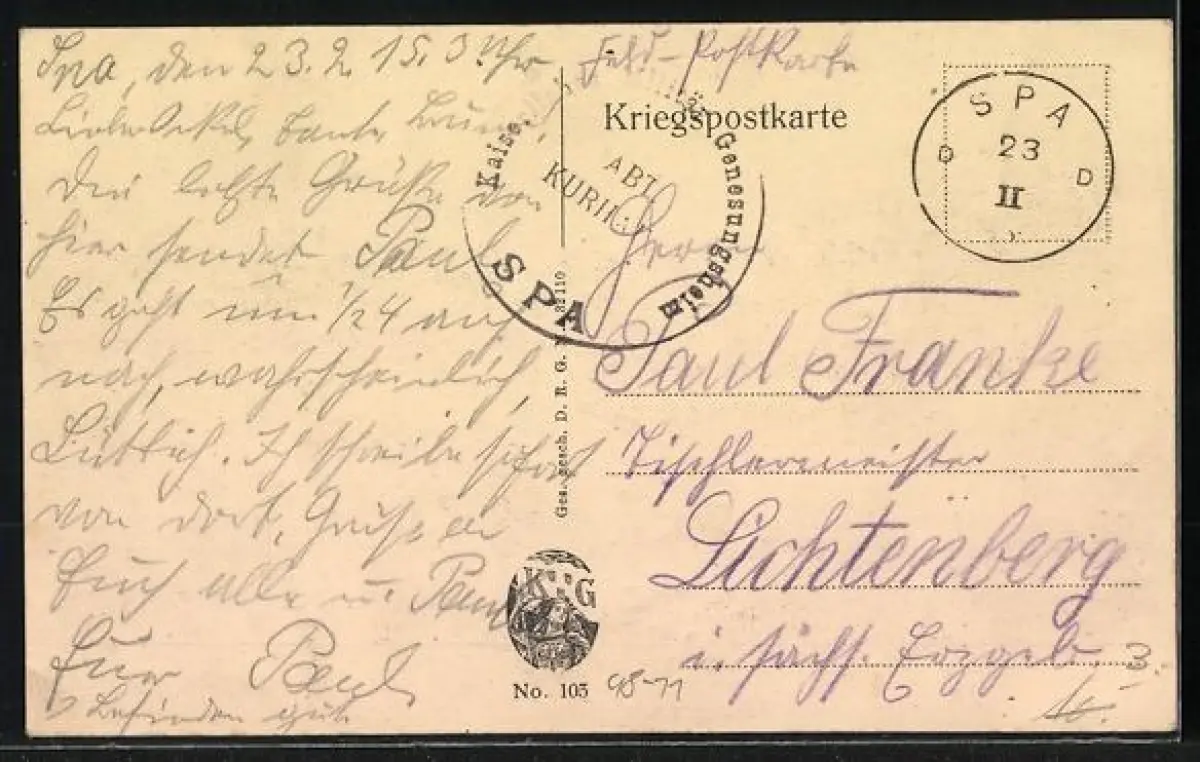 Spa, den 23.2.15. 3 Uhr.
Liebe Onkel, Tante
Die letzte Grüße von
hier sendet Paul
Es geht um 1/24
nach, wahrscheinlich,
Lüttich. Ich schreibe sofort
von dort. Grüße an
Euch alle u. Paul
Euer Paul
Befinden gut
Feld-Postkarte
Kriegspostkarte
Kaise. Genesungsheim
ABT
SPA
SPA
23
II
D D
Herrn
Paul Franke
Tischlermeister
Lichtenberg
i. sächs. Erzgeb.
3
Ges. gesch. D. R. G. M.
K G
No. 103
48-11